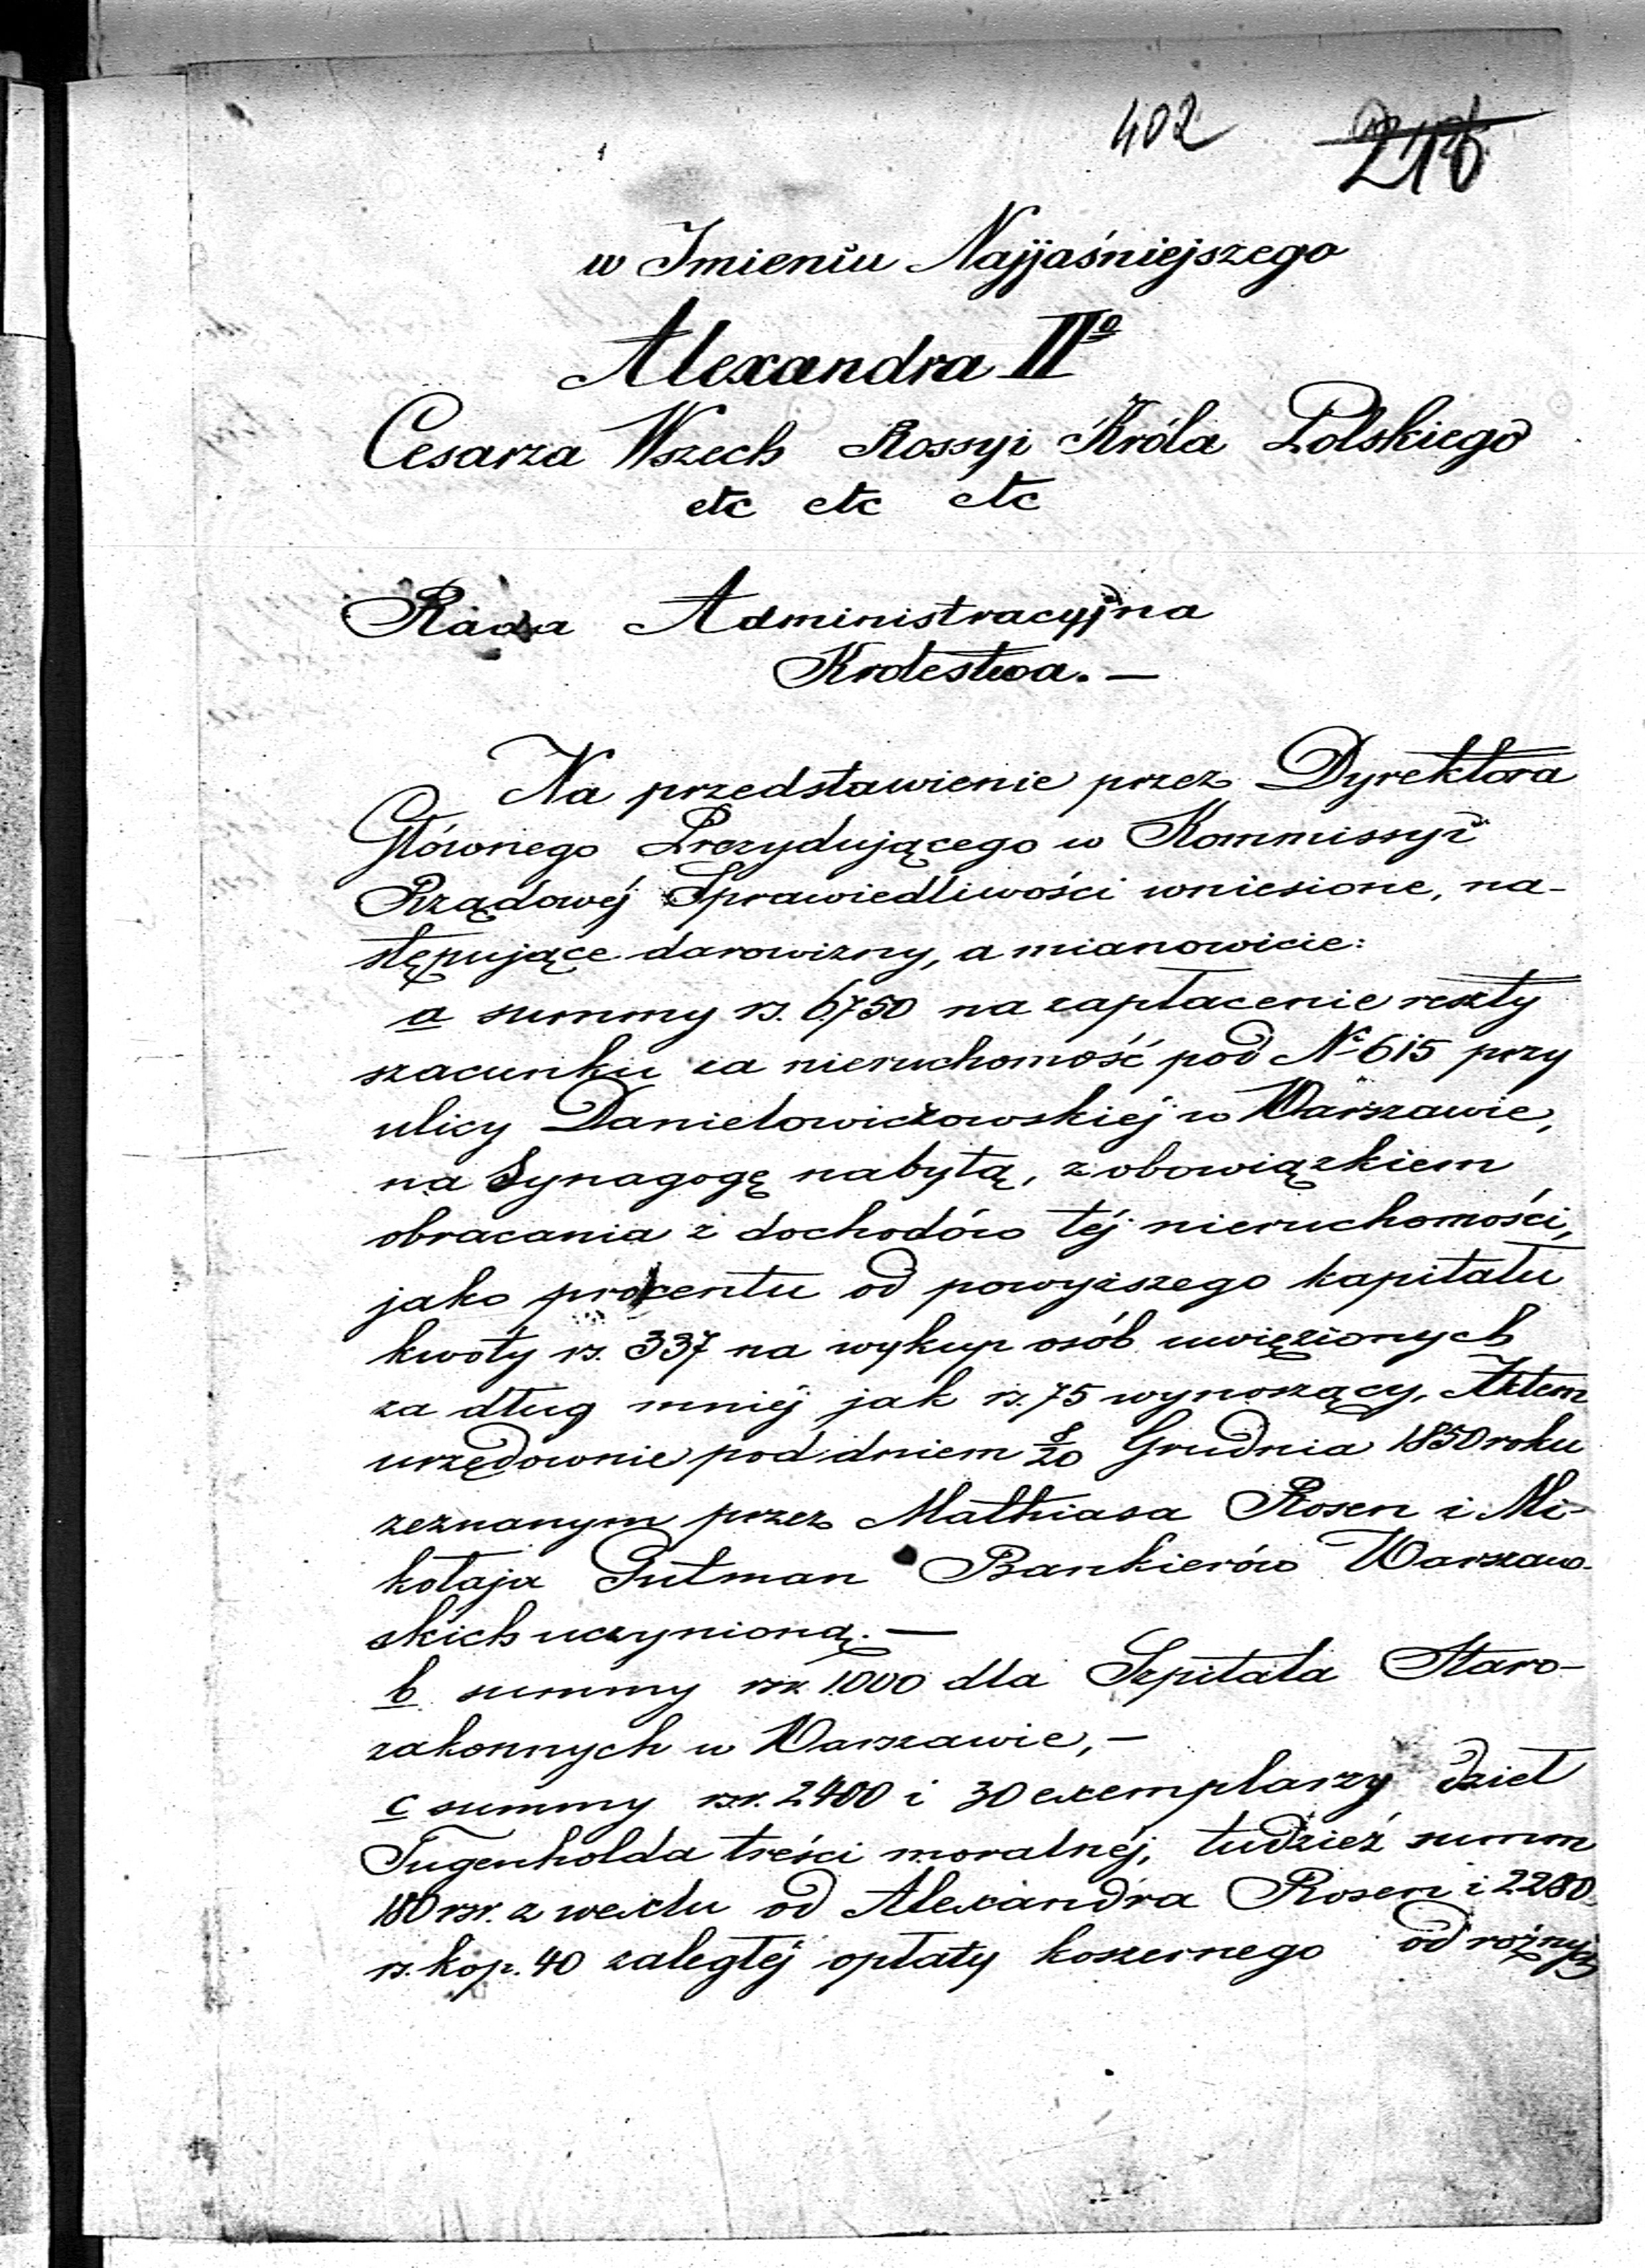 402 216
w Imieniu Najjaśniejszego
Alexandra IIº
Cesarza Wszech Rossyi Króla Polskiego
etc etc etc
Rada Administracyjna
Krolestwa. —
Na przedstawienie przez Dyrektora
Głównego Prezydującego w Kommissyi
Rządowéj Sprawiedliwości wniesione, na-
stępujące darowizny, a mianowicie:
a summy rs. 6750 na zapłacenie reszty
szacunku za nieruchomość pod Nº 615 przy
ulicy Danielowiczowskiéj w Warszawie,
na Synagogę nabytą, z obowiązkiem
obracania z dochodów téj nieruchomości,
jako procentu od powyższego kapitału
kwoty rs. 337 na wykup osób uwięzionych
za dług mniéj jak rs. 75 wynoszący, Aktem
urzędownie pod dniem 8/20 Grudnia 1850 roku
zeznanym przez Mathiasa Rosen i Mi-
kołaja Gutman Bankierów Warszaw-
skich uczynioną. —
b summy rsr. 1000 dla Szpitala Staro-
zakonnych w Warszawie, —
c summy rsr. 2400 i 30 exemplarzy dzieł
Tugenholda treści moralnéj, tudzież summ
180 rsr. z wexlu od Alexandra Rosen i 2280
rs. kop. 40 zaległéj opłaty koszernego od rożnych